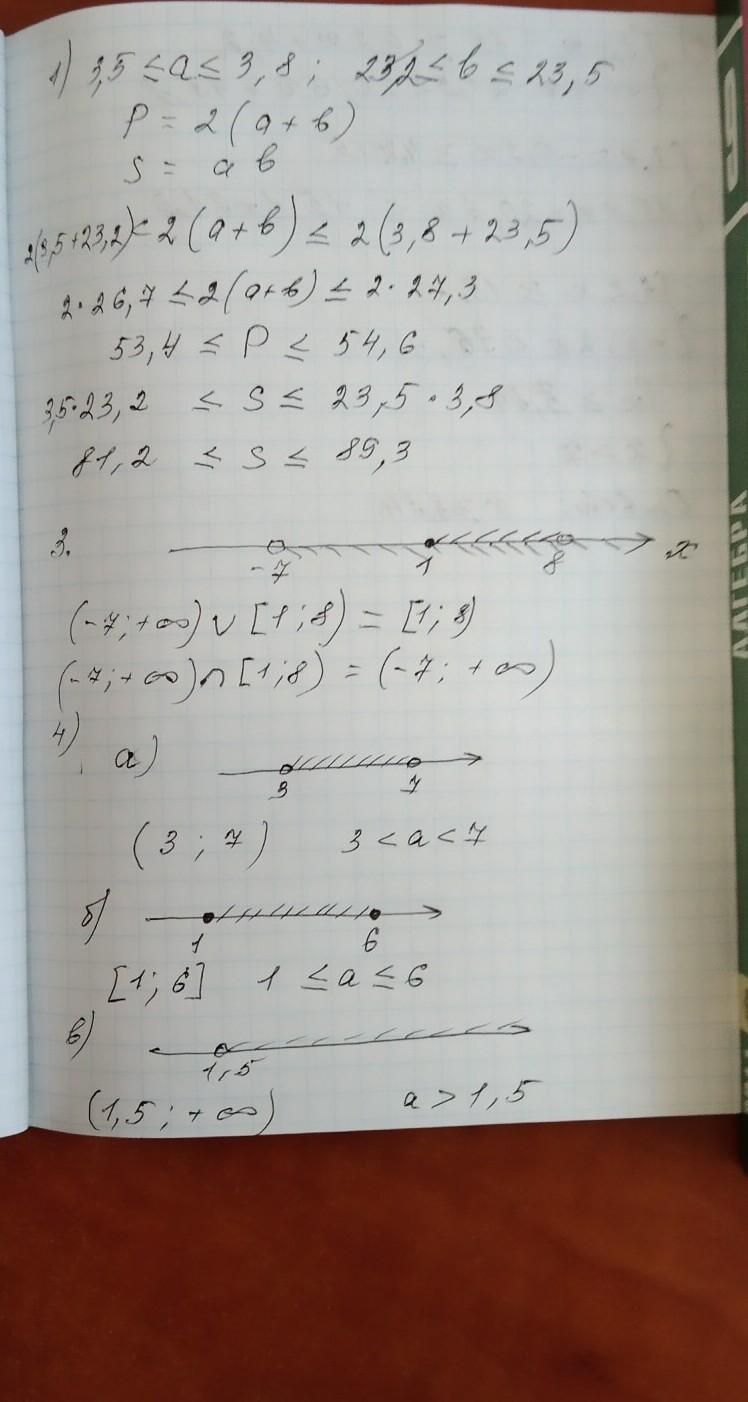 1) 3,5 ≤ a ≤ 3,8 ; 23,2 ≤ b ≤ 23,5
P = 2 (a + b)
S = a b
2(3,5+23,2) < 2 (a+b) ≤ 2(3,8 + 23,5)
2·26,7 ≤ 2(a+b) ≤ 2·27,3
53,4 ≤ P ≤ 54,6
3,5·23,2 ≤ S ≤ 23,5 · 3,8
81,2 ≤ S ≤ 89,3
3.
-7 1 8 x
(-7; +∞) ∪ [1; 8) = [1; 8)
(-7; +∞) ∩ [1; 8) = (-7; +∞)
4)
а)
3 7
(3 ; 7) 3 < a < 7
б)
1 6
[1; 6] 1 ≤ a ≤ 6
в)
1,5
(1,5; +∞) a > 1,5
АЛГЕБРА